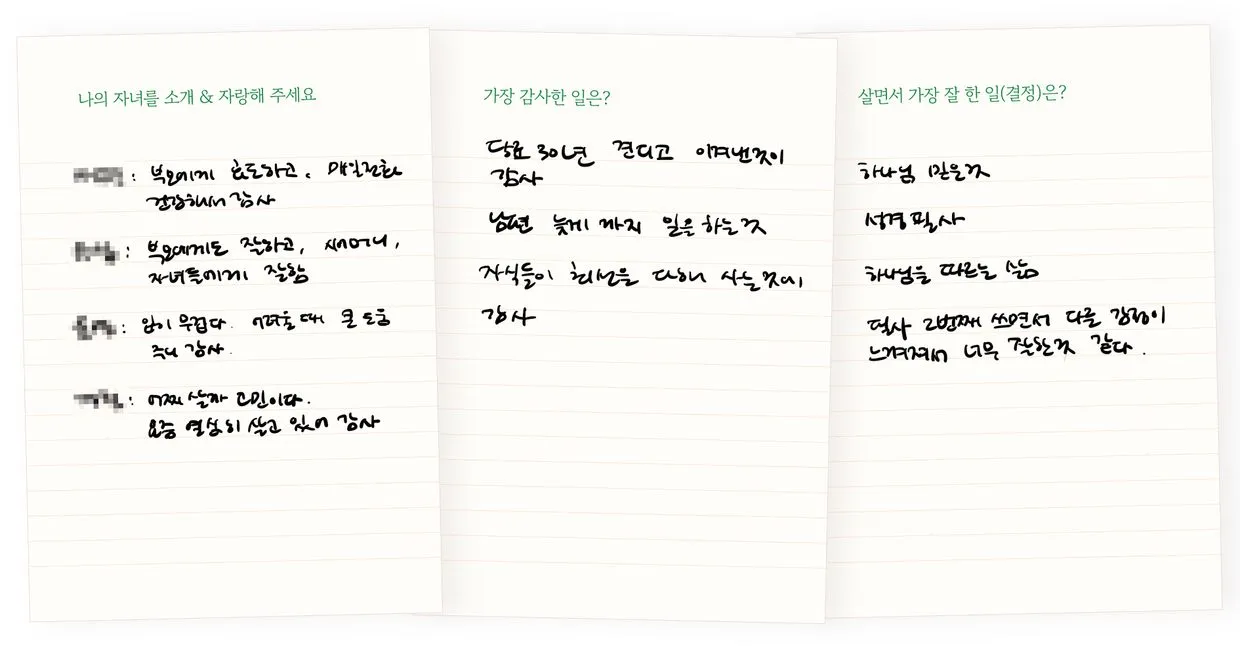 나의 자녀를 소개 & 자랑해 주세요
: 부모에게 효도하고. 매일전화
건강해서 감사
: 부모에게도 잘하고, 시어머니,
자녀들에게 잘함
: 입이 무겁다. 어려울때 큰 도움
주니 감사.
: 어찌 살까 고민이다.
요즘 열심히 살고 있어 감사
가장 감사한 일은?
당뇨 30년 견디고 이겨낸것이
감사
남편 늦게 까지 일을 하는것
자식들이 최선을 다해 사는것에
감사
살면서 가장 잘 한 일(결정)은?
하나님 믿은것
성경필사
하나님을 따르는 삶
필사 2번째 쓰면서 다른 감정이
느껴져서 너무 잘한것 같다.